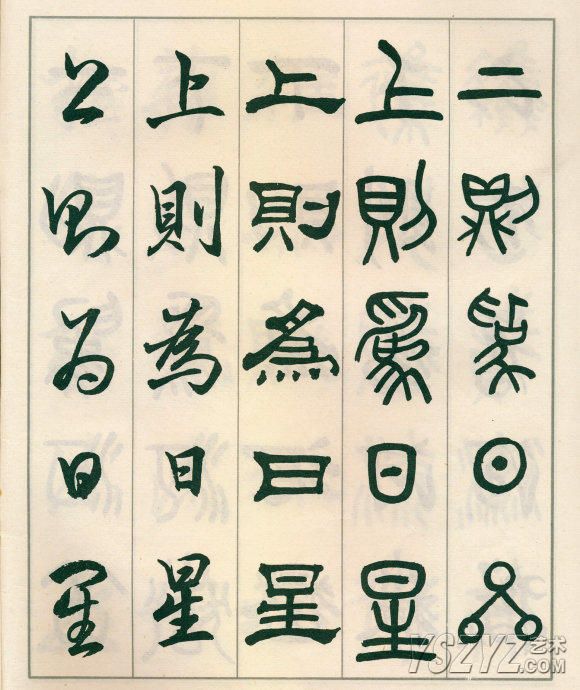 上則為日星
上則為日星
上則為日星
上則為日星
上則為日星
YSZYZ艺术